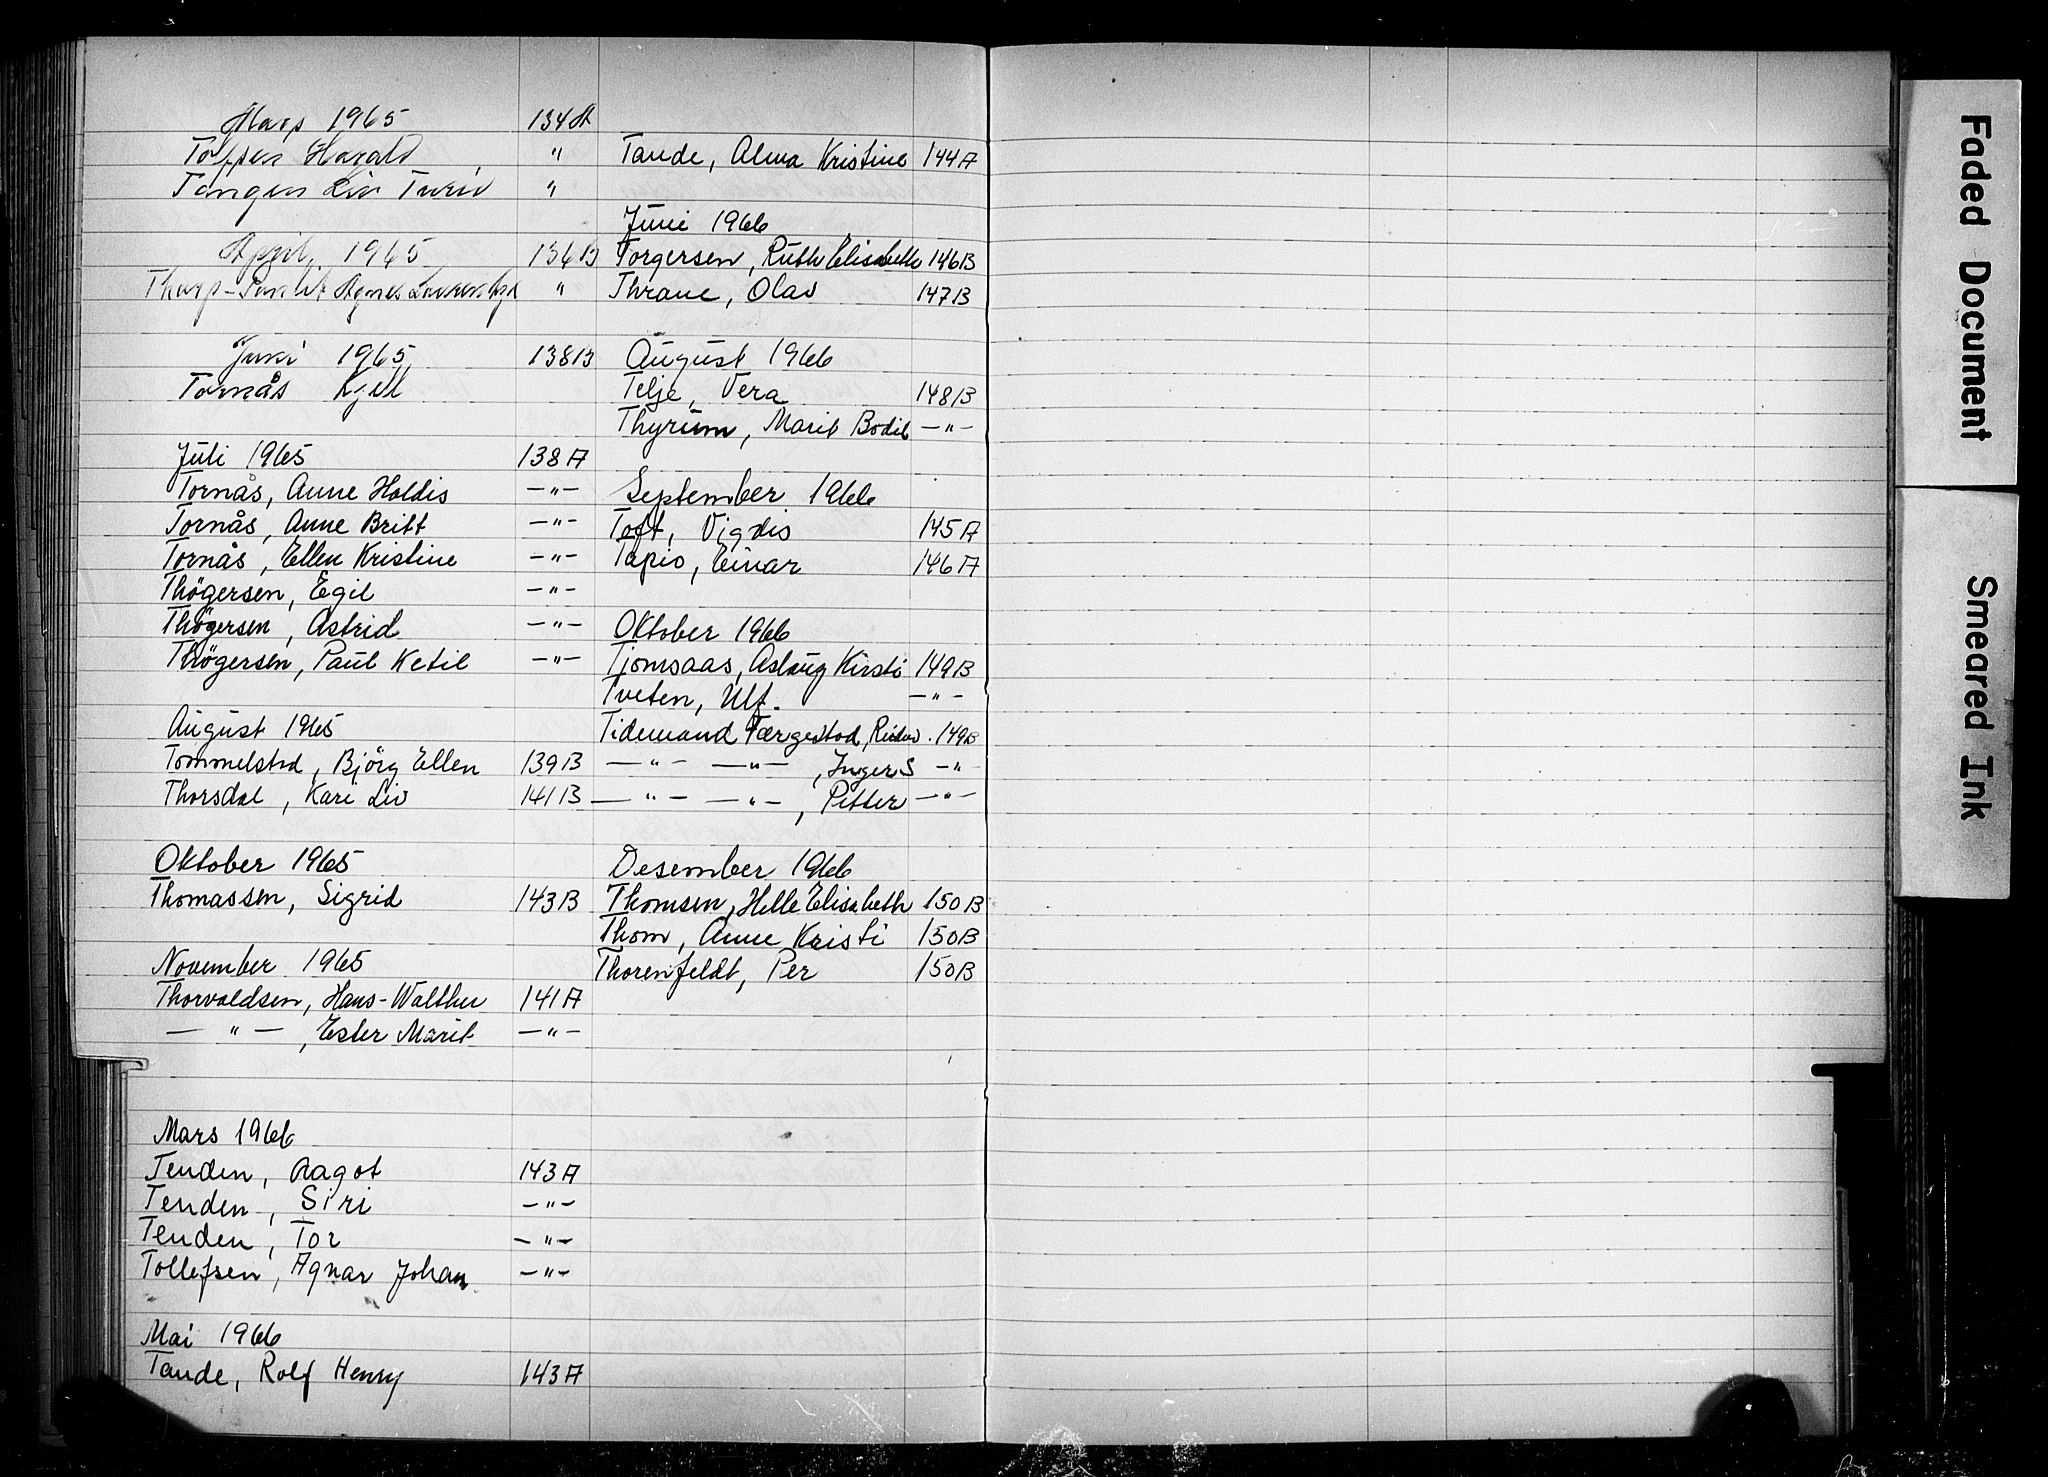 Mars 1965 134A
Toppen Harald "
Tangen Liv Turid "
April 1965 136B
Tharp- Agnes "
Juni 1965 138B
Tornås Kjell
Juli 1965 138A
Tornås, Anne Holdis —"—
Tornås, Anne Britt —"—
Tornås, Ellen Kristine —"—
Thögersen, Egil —"—
Thögersen, Astrid —"—
Thögersen, Paul Ketil —"—
August 1965
Tommelstad, Björg Ellen 139B
Thorsdal, Kari Liv 141B
Oktober 1965
Thomassen, Sigrid 143B
November 1965
Thorvaldsen, Hans-Walther 141A
— " —, Ester Marit —"—
Mars 1966
Tenden, Aagot 143A
Tenden, Siri —"—
Tenden, Tor —"—
Tollefsen, Agnar Johan —"—
Mai 1966
Tande, Rolf Henry 143A
Tande, Alma Kristine 144A
Juni 1966
Torgersen, Ruth Elisabeth 146B
Thrane, Olav 147B
August 1966
Telje, Vera 148B
Thyrum, Marit Bodil —"—
September 1966
Toft, Vigdis 145A
Tapio, Einar 146A
Oktober 1966
Tjomsaas, Aslaug Kirsti 149B
Tveten, Ulf. —"—
Tidemand Færgestad, Reidar. 149B
—"— —"—, Inger S —"
—"— —"—, Petter —"—
Desember 1966
Thomsen, Helle Elisabeth 150B
Thom, Anne Kristi 150B
Thorenfeldt, Per 150B
Faded Document
Smeared Ink